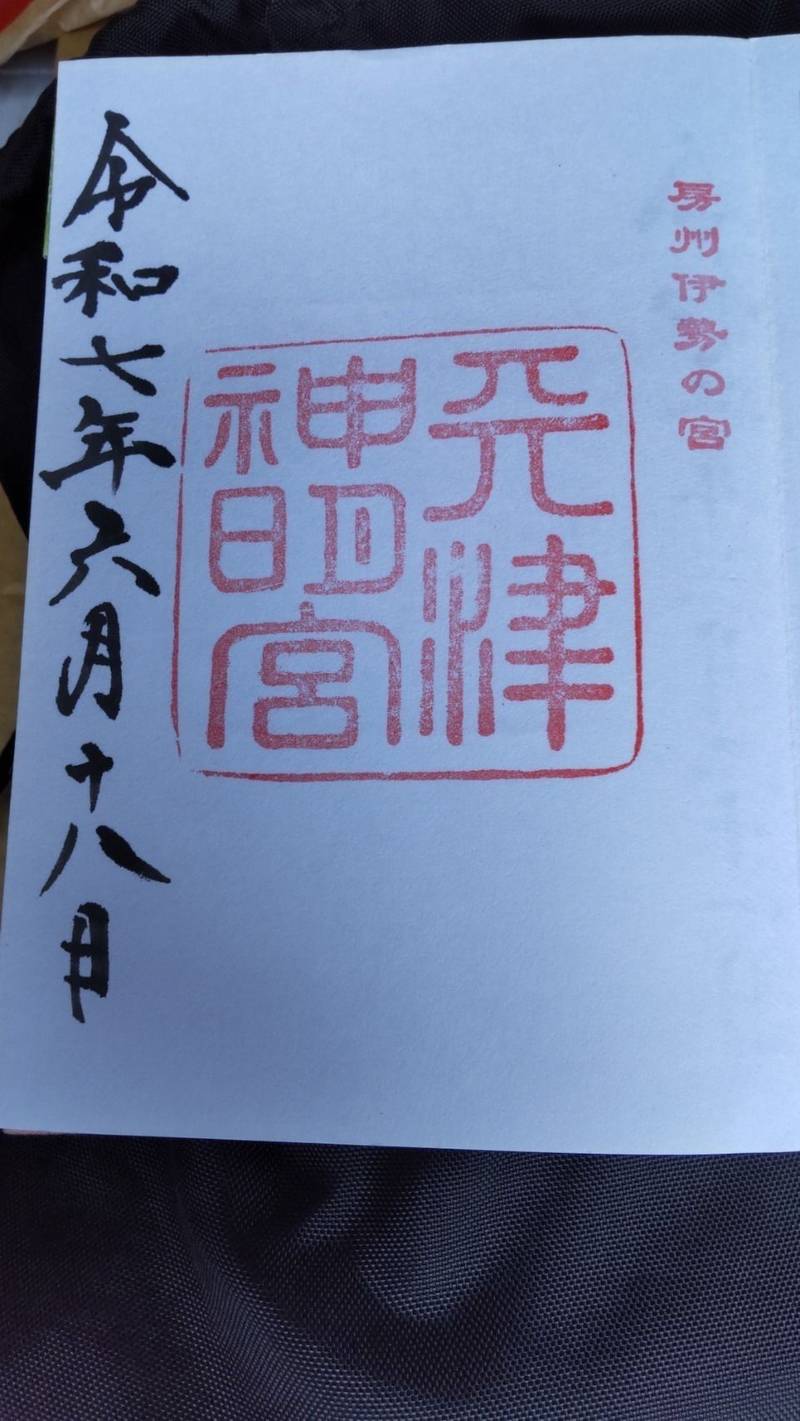 房州伊勢の宮
天津
神明宮
令和七年六月十八日